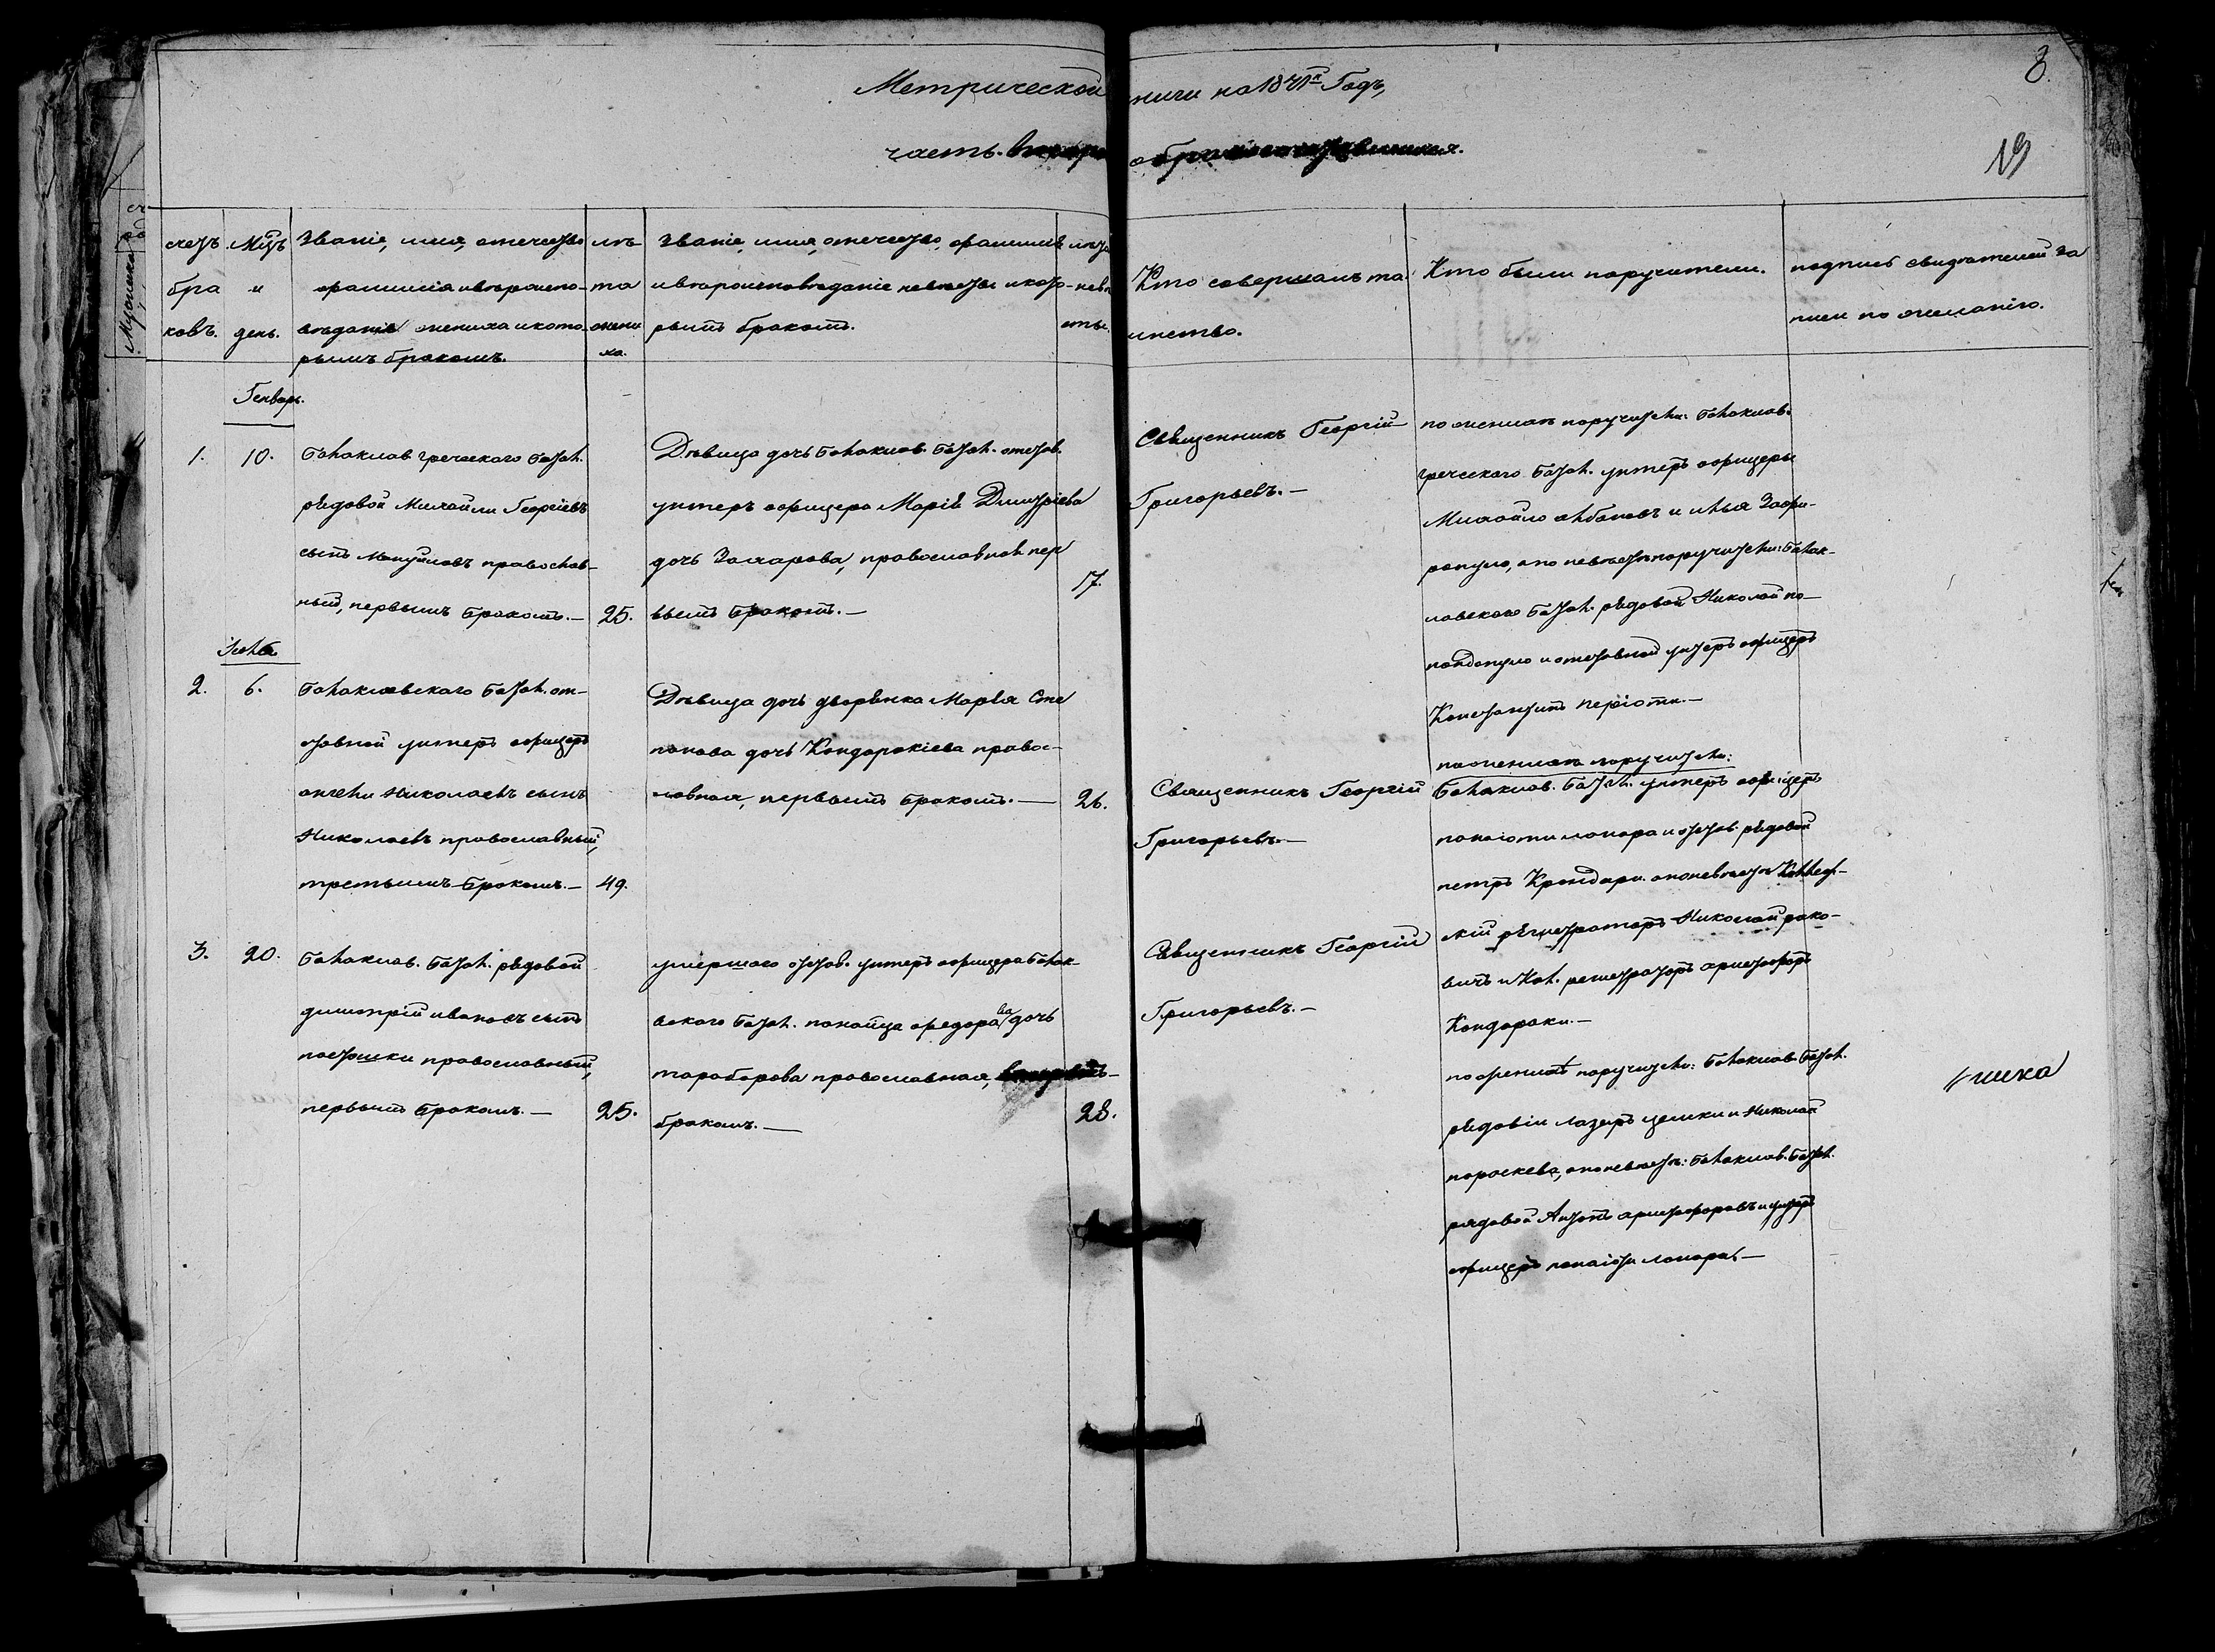 Метрической книги на 1841й Годъ,
8.
часть вторая о бракосочетавшихся.
19
счетъ браковъ.
Мцъ и день.
Званіе, имя, отечество
фамилія и вѣроиспо-
вѣданіе жениха и кото-
рымъ бракомъ.
лѣта жениха.
Званіе, имя, отечество, фамилія
и вѣроисповѣданіе невѣсты и кото-
рымъ бракомъ.
лѣта невѣсты.
Кто совершалъ та
инство.
Кто были поручители.
подпись свидѣтелей за
писи по желанію.
Генварь.
1. 10.
Балаклав греческаго батал.
рядовой Михайли Георгіевъ
сынъ Мануйловъ православ-
ный, первымъ бракомъ.— 25.
Дѣвица дочь Балаклав. батал. отстав.
унтеръ офицера Марія Дмитріева
дочь Захарова, православная пер
вымъ бракомъ.—
17.
Священникъ Георгій
Григорьевъ.—
по женихѣ поручители: Балаклав.
греческаго батал. унтеръ офицеры
Михайло и Илья Зафи-
ропуло, а по невѣстѣ поручители: Балак-
лавскаго батал. рядовой Николай по-
пандопуло и отставной унтеръ офицеръ
Константинъ періоти.—
Іюля
2. 6.
Балаклавскаго батал. от-
ставной унтеръ офицеръ
ангели Николаевъ сынъ
Николаевъ православный,
третьимъ бракомъ.— 49.
Дѣвица дочь дворянка Марія Сте
панова дочь Кондоракіева правос-
лавная, первымъ бракомъ.— 26.
Священникъ Георгій
Григорьевъ.—
по женихѣ поручители:
Балаклав. батал. унтеръ офицеръ
панаіоти лапора и отстав. рядовой
петръ Крондари. а по невѣстѣ Коллеж-
скій регистраторъ Николай рако-
вичъ и Кол. регистраторъ христофоръ
Кондораки.—
3. 20.
Балаклав. батал. рядовой
димитрій ивановъ сынъ
православный,
первымъ бракомъ.— 25.
умершаго отстав. унтеръ офицера Балак-
вскаго батал. панаица федорова дочь
тараборова православная, вторымъ
бракомъ.—
28.
Священникъ Георгій
Григорьевъ.—
по женихѣ поручители: Балаклав. батал.
рядовіи лазарь и Николай
параскева, а по невѣстѣ: Балаклав. батал.
рядовой Антонъ христофоровъ и унтеръ
офицеръ панаіоти лапора.—